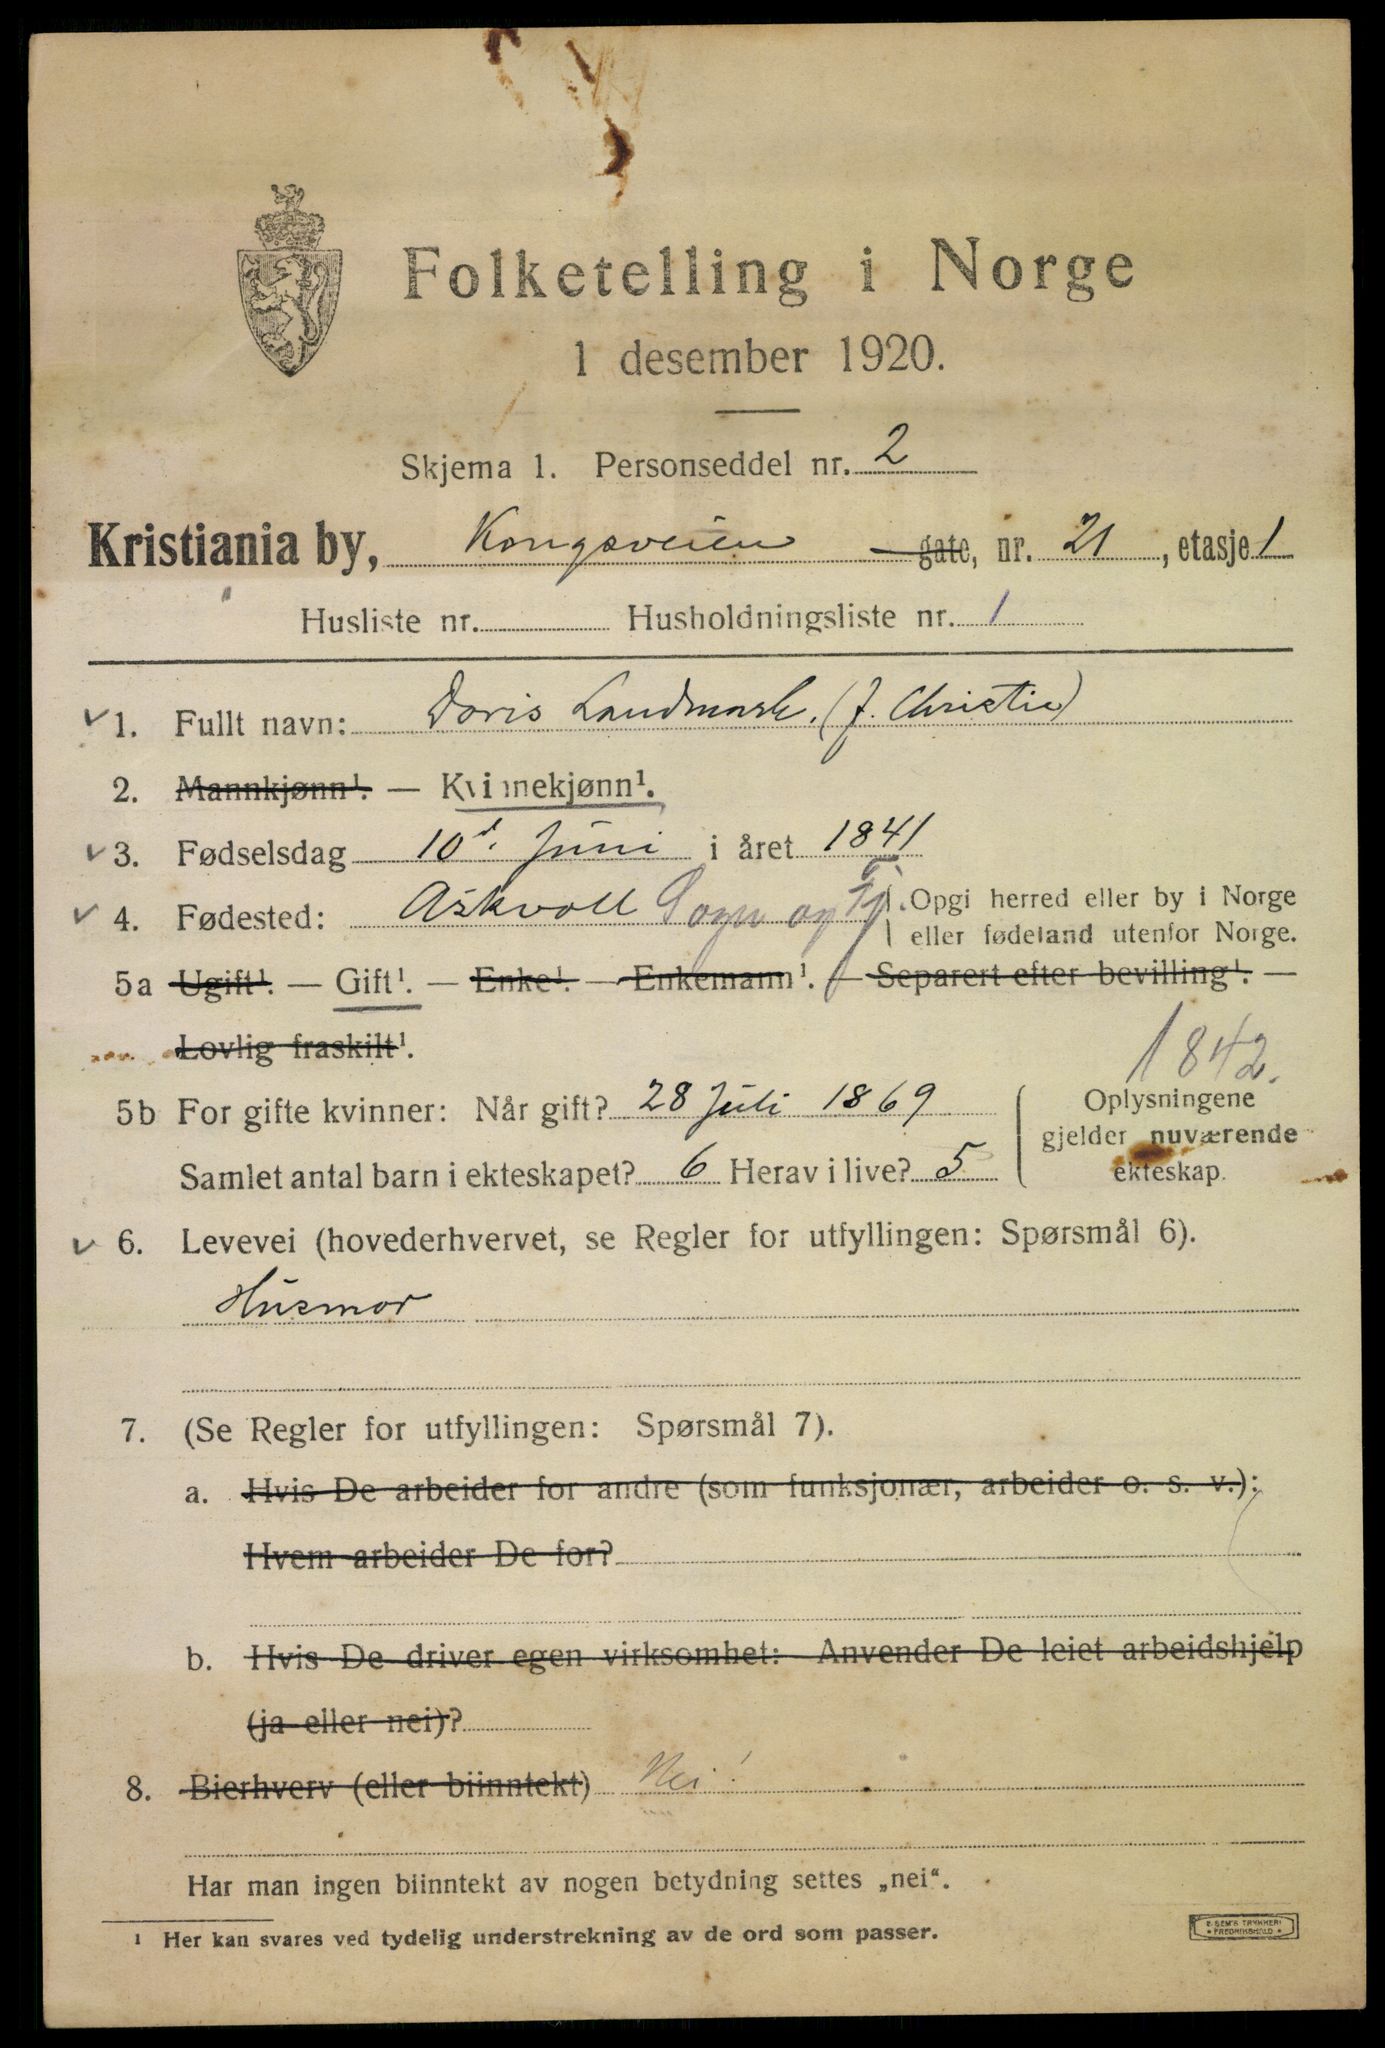 Folketelling i Norge
1 desember 1920.
Skjema 1. Personseddel nr. 2
Kristiania by, Kongsveien gate, nr. 21, etasje 1
Husliste nr. Husholdningsliste nr. 1
1. Fullt navn: Doris Landmark. (f. Christie)
2. Mannkjønn¹. — Kvinnekjønn¹.
3. Fødselsdag 10d. Juni i året 1841
4. Fødested: Askvoll Sogn og Fj. Opgi herred eller by i Norge
eller fødeland utenfor Norge.
5a Ugift¹. — Gift¹. — Enke¹. — Enkemann¹. — Separert efter bevilling¹. —
Lovlig fraskilt¹.
1842.
5b For gifte kvinner: Når gift? 28 Juli 1869 Oplysningene
gjelder nuværende
Samlet antal barn i ekteskapet? 6 Herav i live? 5 ekteskap.
6. Levevei (hovederhvervet, se Regler for utfyllingen: Spørsmål 6).
Husmor
7. (Se Regler for utfyllingen: Spørsmål 7).
a. Hvis De arbeider for andre (som funksjonær, arbeider o. s. v.):
Hvem arbeider De for?
b. Hvis De driver egen virksomhet: Anvender De leiet arbeidshjelp
(ja eller nei)?
8. Bierhverv (eller biinntekt) Nei!
Har man ingen biinntekt av nogen betydning settes „nei“.
¹ Her kan svares ved tydelig understrekning av de ord som passer.
E. SEM'S TRYKKERI
FREDRIKSHALD